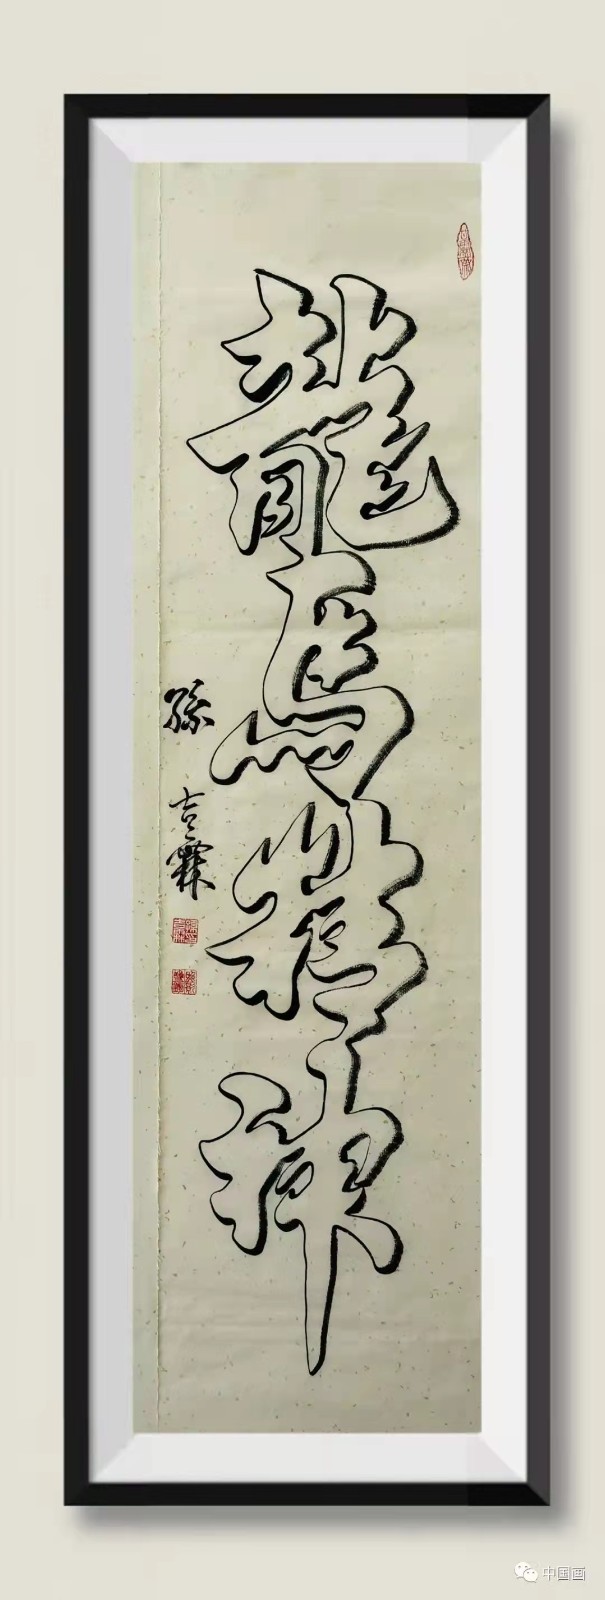 龍馬精神
孫吉霖
中国画